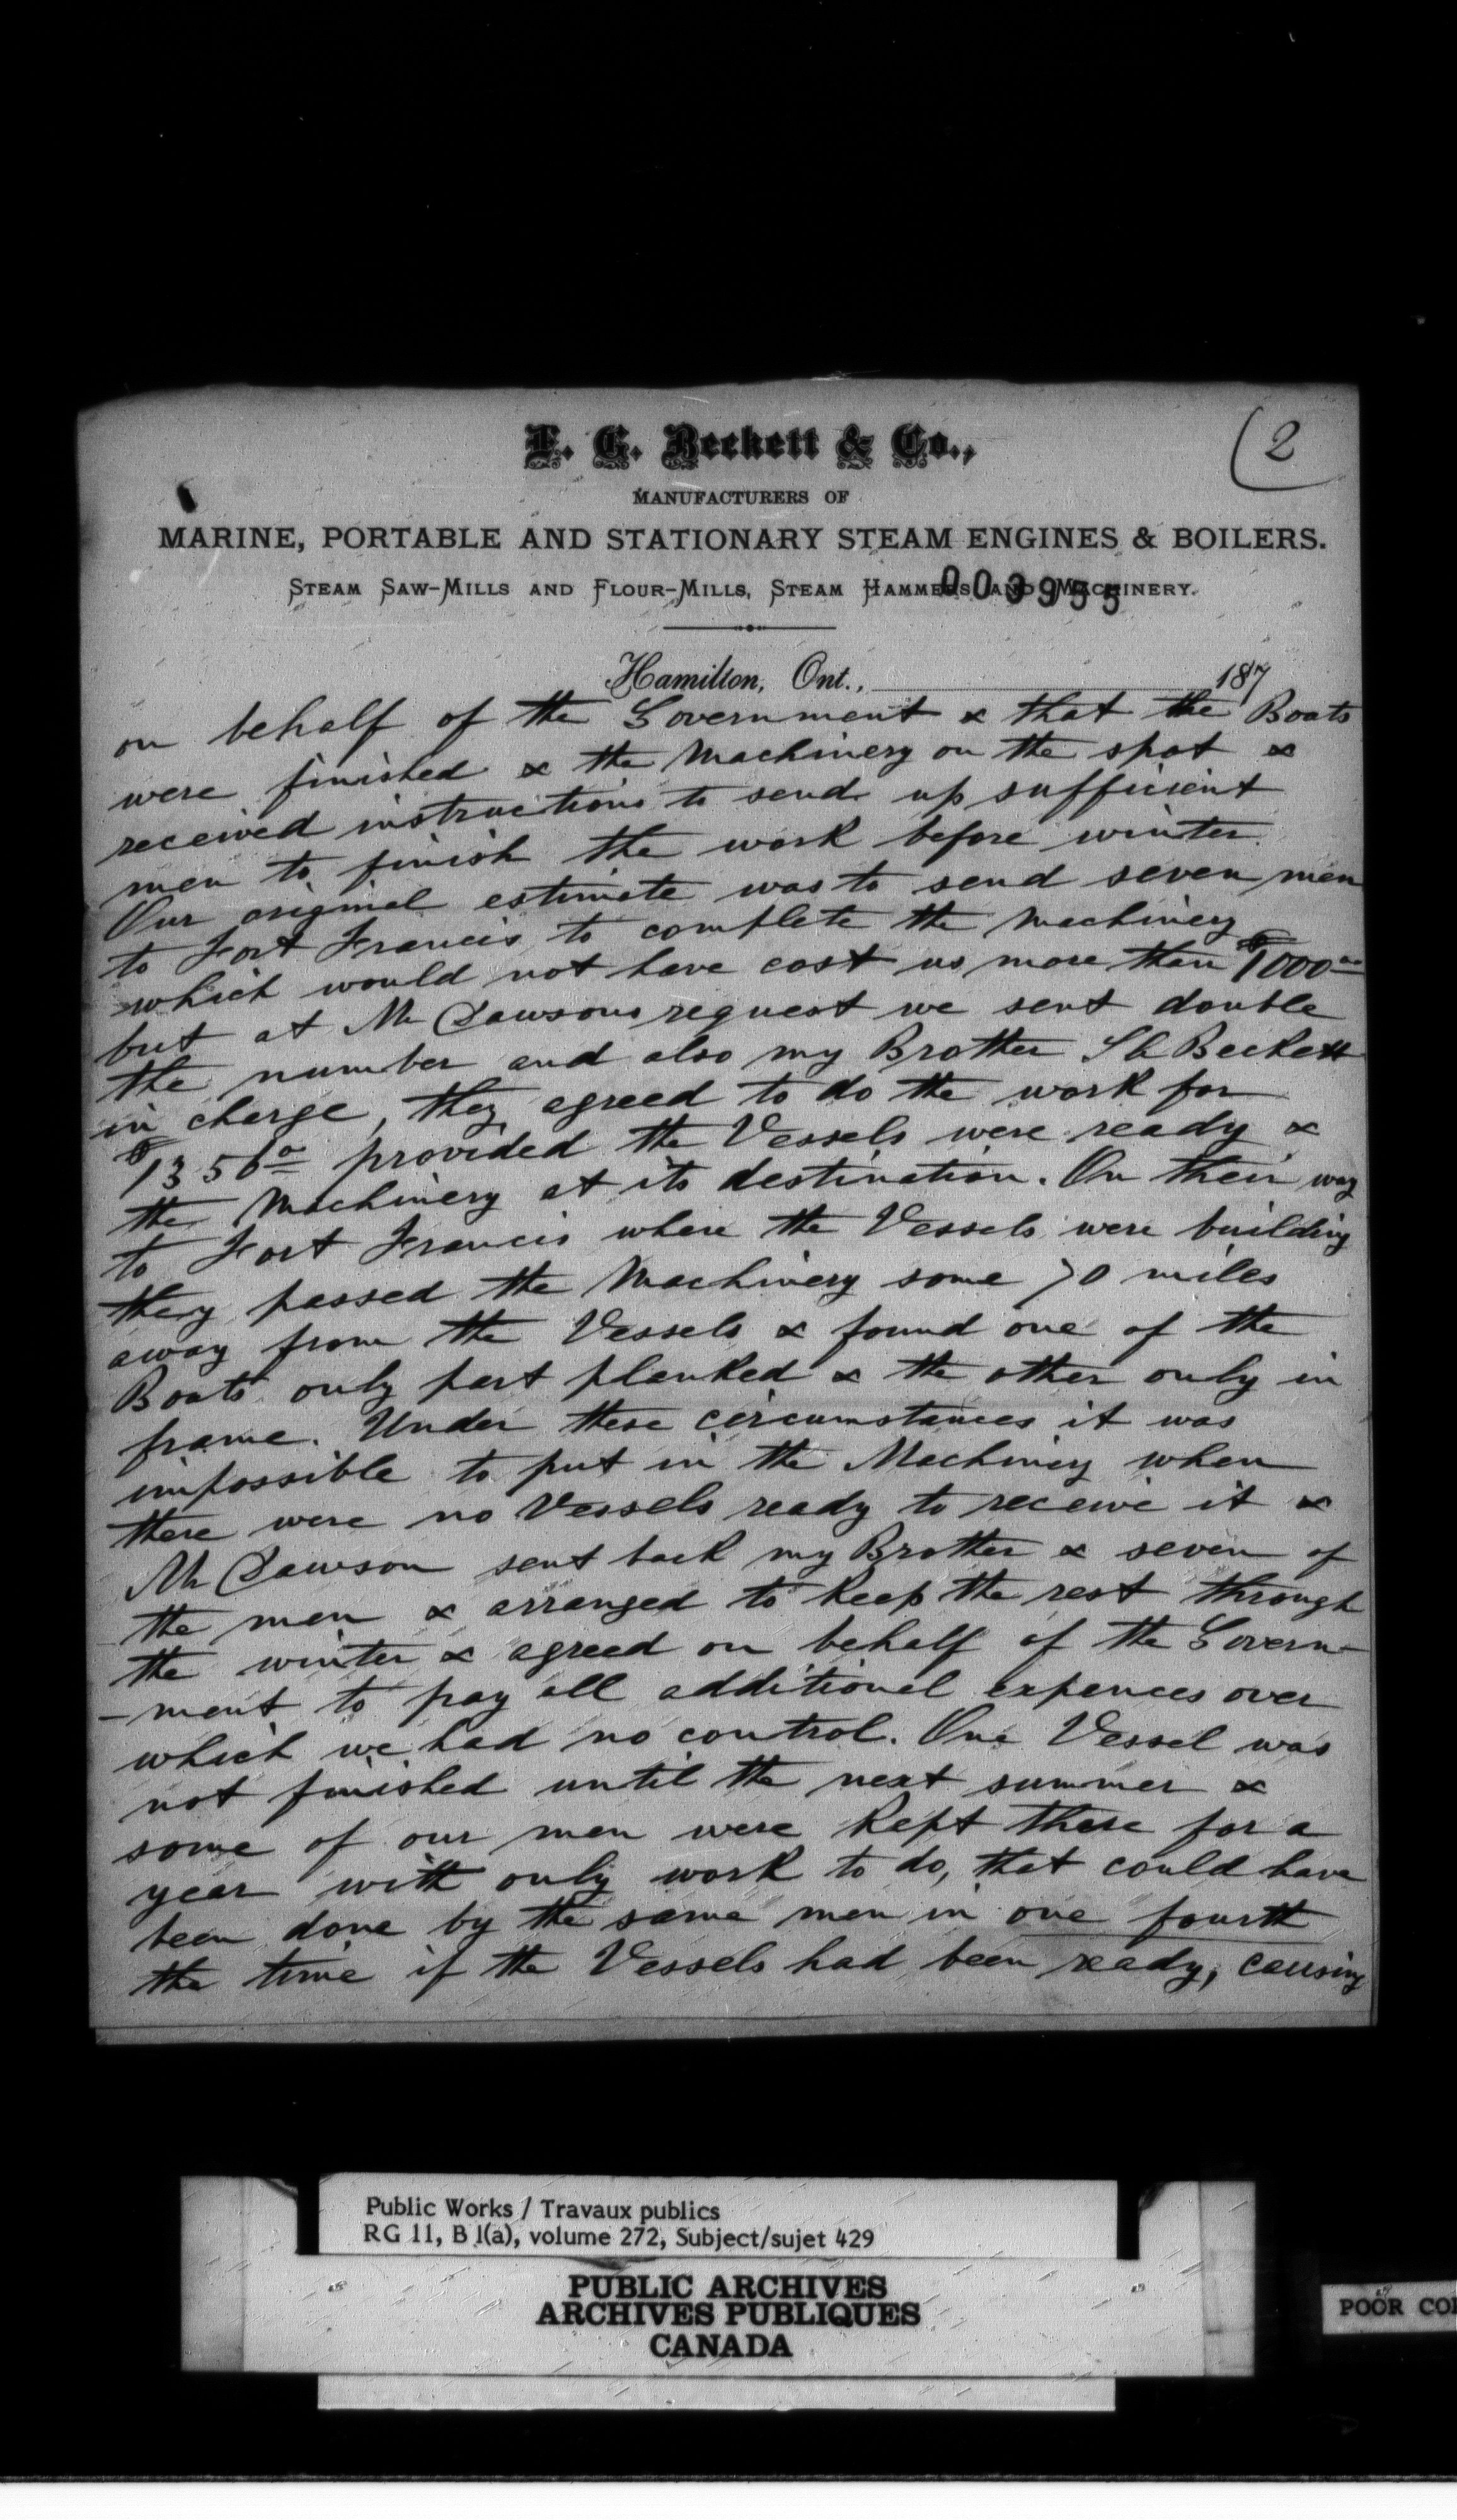 F. G. Beckett & Co.,
(2
MANUFACTURERS OF
MARINE, PORTABLE AND STATIONARY STEAM ENGINES & BOILERS.
STEAM SAW-MILLS AND FLOUR-MILLS, STEAM HAMMERS AND MACHINERY.
003955
Hamilton, Ont., 187
on behalf of the Government & that the Boats
were finished & the Machinery on the spot &
received instructions to send up sufficient
men to finish the work before winter.
Our original estimate was to send seven men
to Fort Francis to complete the Machinery
which would not have cost us more than $1000
but at Mr Dawsons request we sent double
the number and also my Brother Beckett
in charge, they agreed to do the work for
provided the Vessels were ready &
the Machinery at its destination. On their way
to Fort Francis where the Vessels were building
they passed the Machinery some 70 miles
away from the Vessels & found one of the
Boats only part planked & the other only in
frame. Under these circumstances it was
impossible to put in the Machinery when
there were no Vessels ready to receive it &
Mr Dawson sent back my Brother & seven of
the men & arranged to keep the rest through
the winter & agreed on behalf of the Govern-
-ment to pay all additional expences over
which we had no control. One Vessel was
not finished until the next summer &
some of our men were kept there for a
year with only work to do, that could have
been done by the same men in one fourth
the time if the Vessels had been ready, causing
Public Works / Travaux publics
RG 11, B 1(a), volume 272, Subject/sujet 429
PUBLIC ARCHIVES
ARCHIVES PUBLIQUES
CANADA
POOR